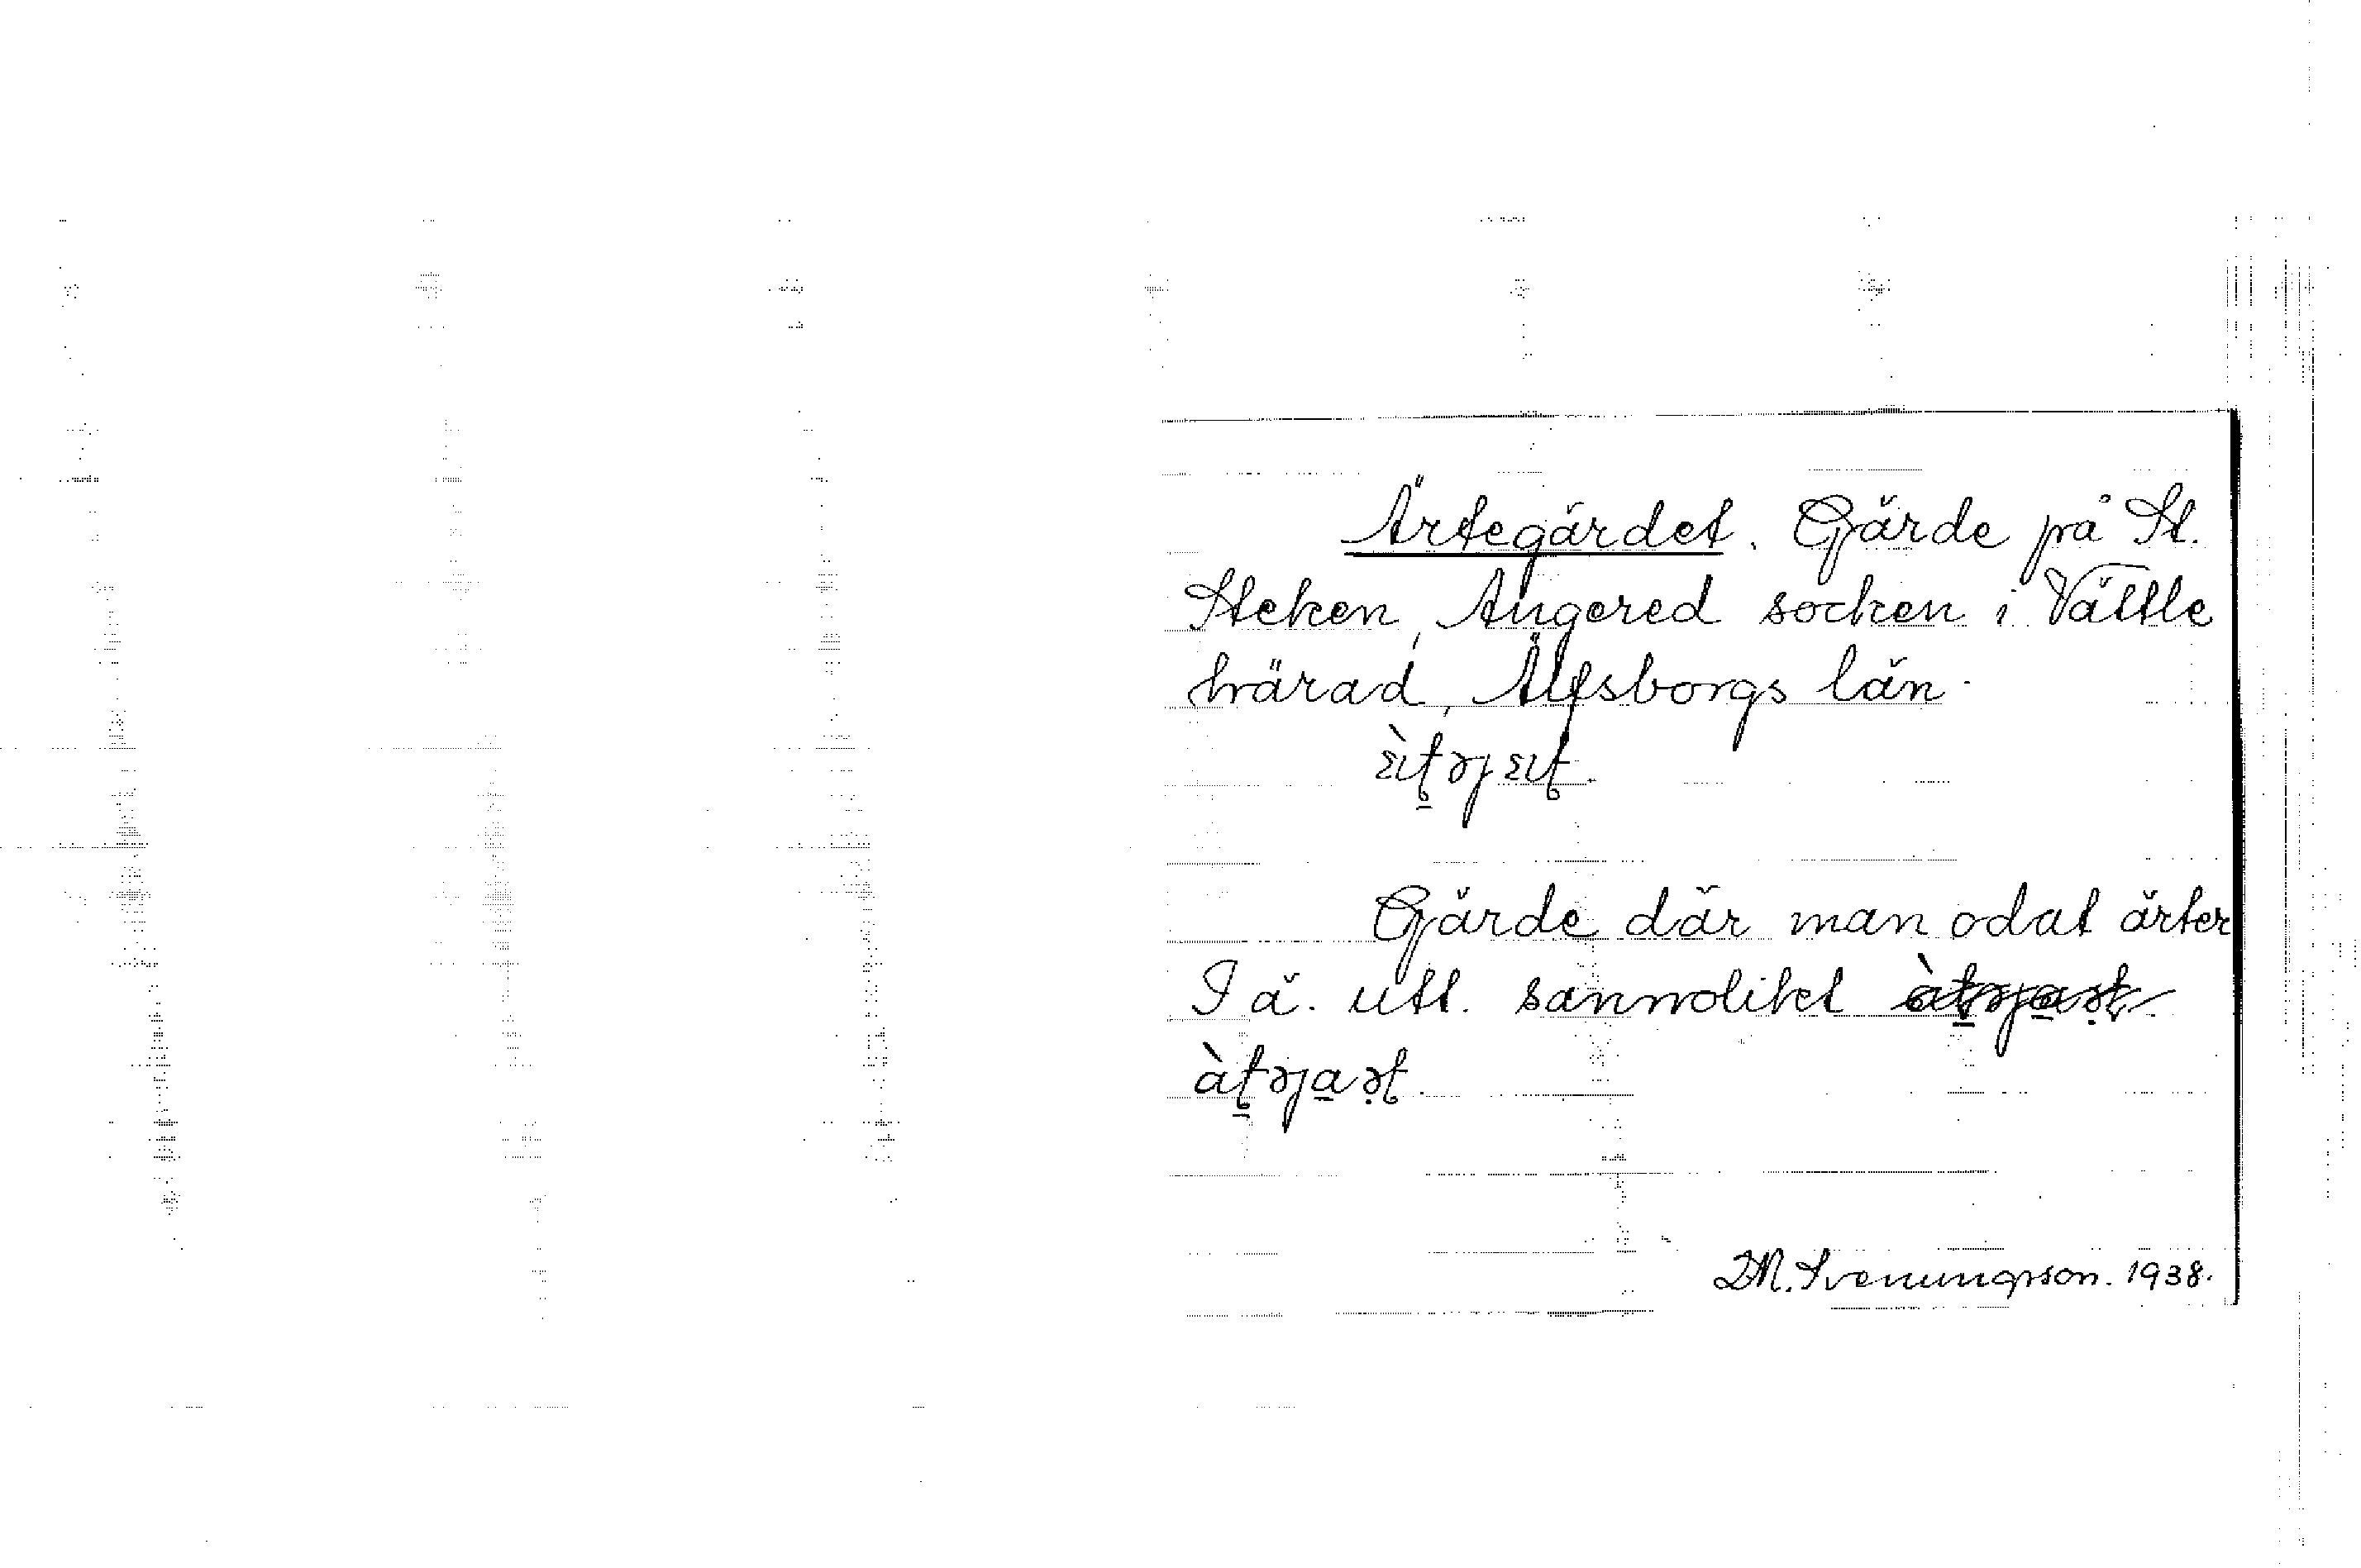 Ärtegärdet. Gärde på St.
Steken, Angered socken i Vättle
härad, Älfsborgs län.
Gärde där man odat ärter
I ä. utt. sannolikt
M. Svenungsson. 1938.